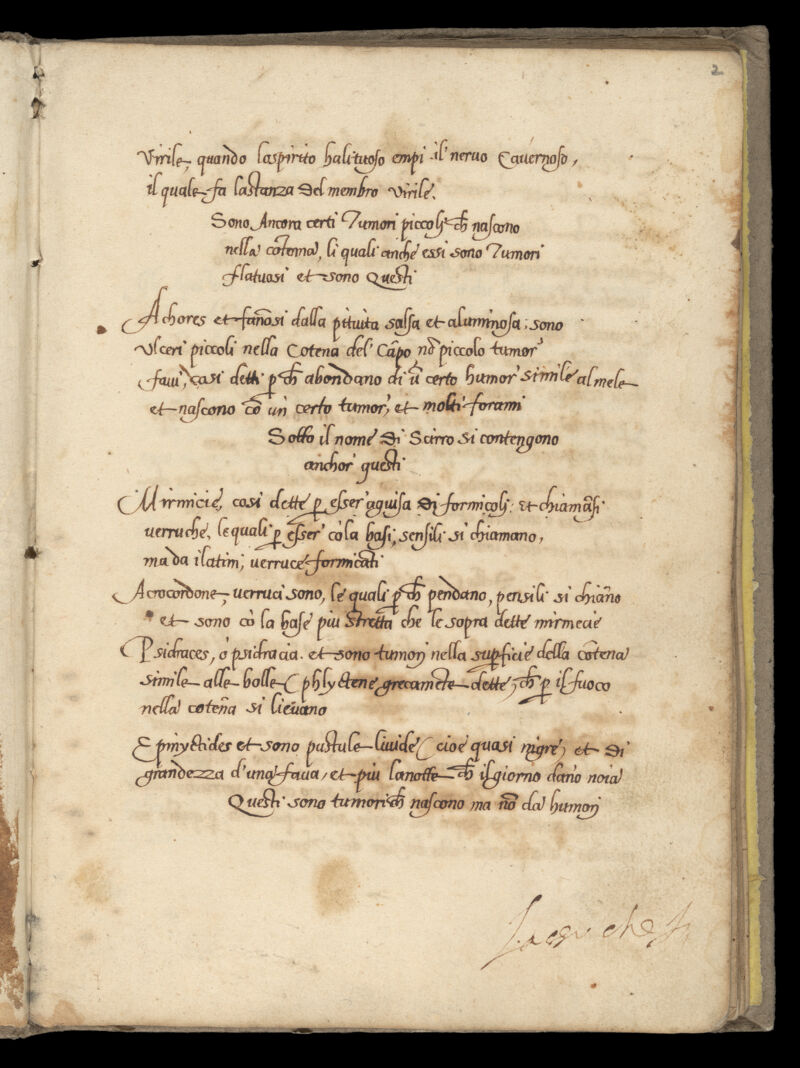 2
Virile, quando laspirito halituoso empi il nervo Cavernoso,
il quale fa lastanza del membro virile.
Sono Ancora certi Tumori piccoli ch̄ nascono
nella cotenna, li quali anche essi sono Tumori
flatuosi et sono Questi
Achores et fanōsi dalla pituita salsa et aluminosa: sono
Ulceri piccoli nella Cotena del Cāpo nō piccolo tumor
favi, casi detti p ch̄ abondano di ū certo humor simile al mele
et nascono cō un certo tumor, et molti forami
Sotto il nome di Scirro si contengono
anchor questi
Mirmicie, cosi dette p esser aguisa di formicoli: et chiamāsi
verruche, le quali p esser cō la basi, sensili si chiamano,
ma da i latini, verruce formicati
Acrocordone, verruci sono, le quali p ch̄ pendano, pensili si chiāno
et sono cō la base piu stretta che le sopra dette mirmecie
Psidraces, o psidracia. et sono tumori nella superficie della cotena
simile alle bolle (phlyctene grecamēte dette, ch̄ p il fuoco
nella cotena si lievano
Epinyctides et sono pustule livide (cioe quasi nigre, et di
grandezza d'una fava, et piu lanotte ch̄ ilgiorno dano noia
Questi sono tumori ch̄ nascono ma nō da humori